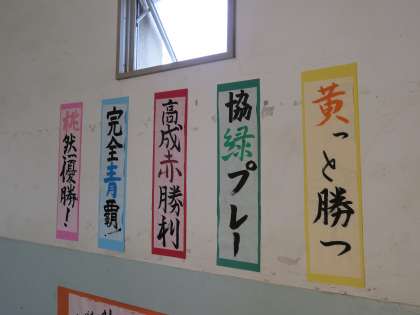 黄っと勝つ
協緑プレー
高成赤勝利
完全青覇
桃然優勝！